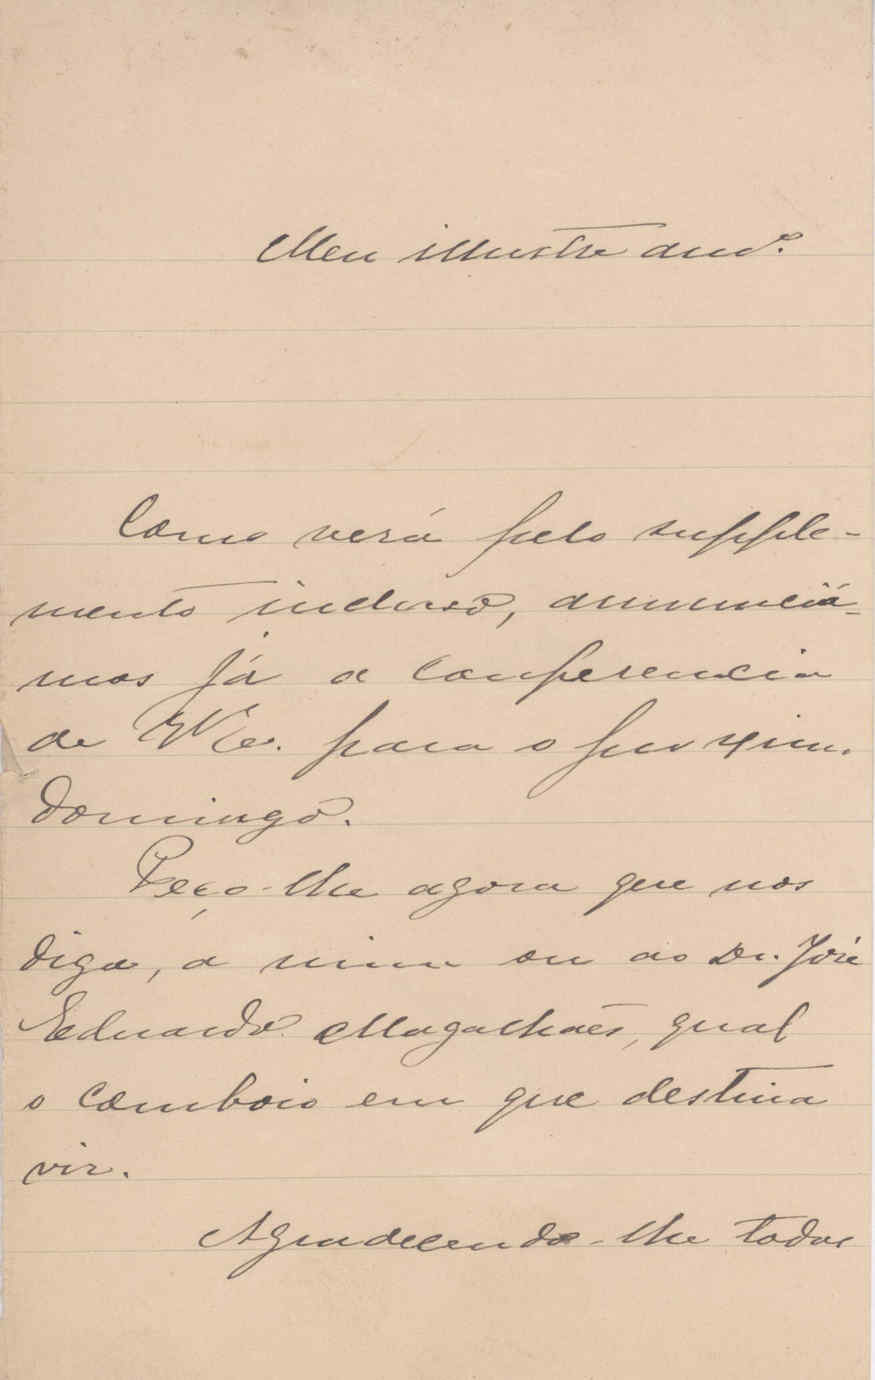 Meu illustre amº.
Como verá pelo supple-
mento incluso, annunciá-
mos já a conferencia
de V. Ex. para o proximo
domingo.
Peço-lhe agora que nos
diga, a mim ou ao Dr. José
Eduardo Magalhães, qual
o comboio em que destina
vir.
Agradecendo-lhe todas